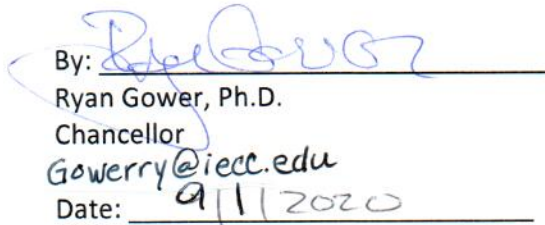 By: Ryan Gower
Ryan Gower, Ph.D.
Chancellor
Gowerry@iecc.edu
Date: 9/1/2020